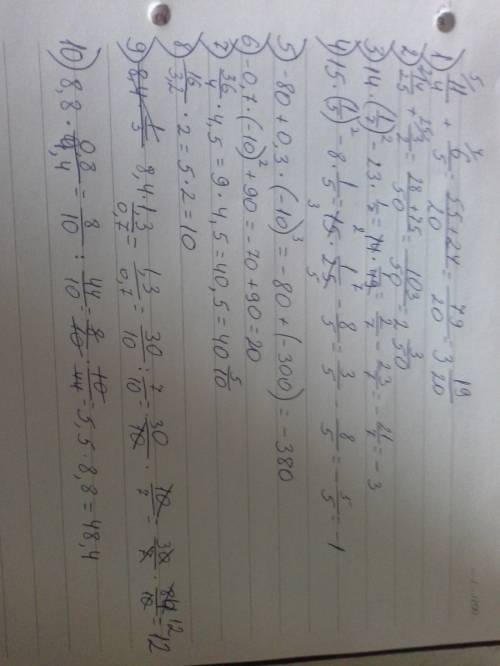 1) 11/4 + 6/5 = 55+24/20 = 79/20 = 3 19/20
2) 14/25 + 3/2 = 28+75/50 = 103/50 = 2 3/50
3) 14·(1/7)² - 23·1/7 = 14· 1/49 = 2/7 - 23/7 = -21/7 = -3
4) 15·(1/5)² - 8·1/5 = 15· 1/25 - 8/5 = 3/5 - 8/5 = -5/5 = -1
5) -80 + 0,3·(-10)³ = -80 + (-300) = -380
6) -0,7·(-10)² + 90 = -70 + 90 = 20
7) 36/4 · 4,5 = 9·4,5 = 40,5 = 40 5/10
8) 16/3,2 · 2 = 5·2 = 10
9) 8,4· 1,3/0,7 = 1,3/0,7 = 30/10 : 7/10 = 30/10 · 10/7 = 30/7 · 84/10 = 12
10) 8,8· 0,8/4,4 = 8/10 : 44/10 = 8/10 · 10/44 = 5,5·8,8 = 48,4